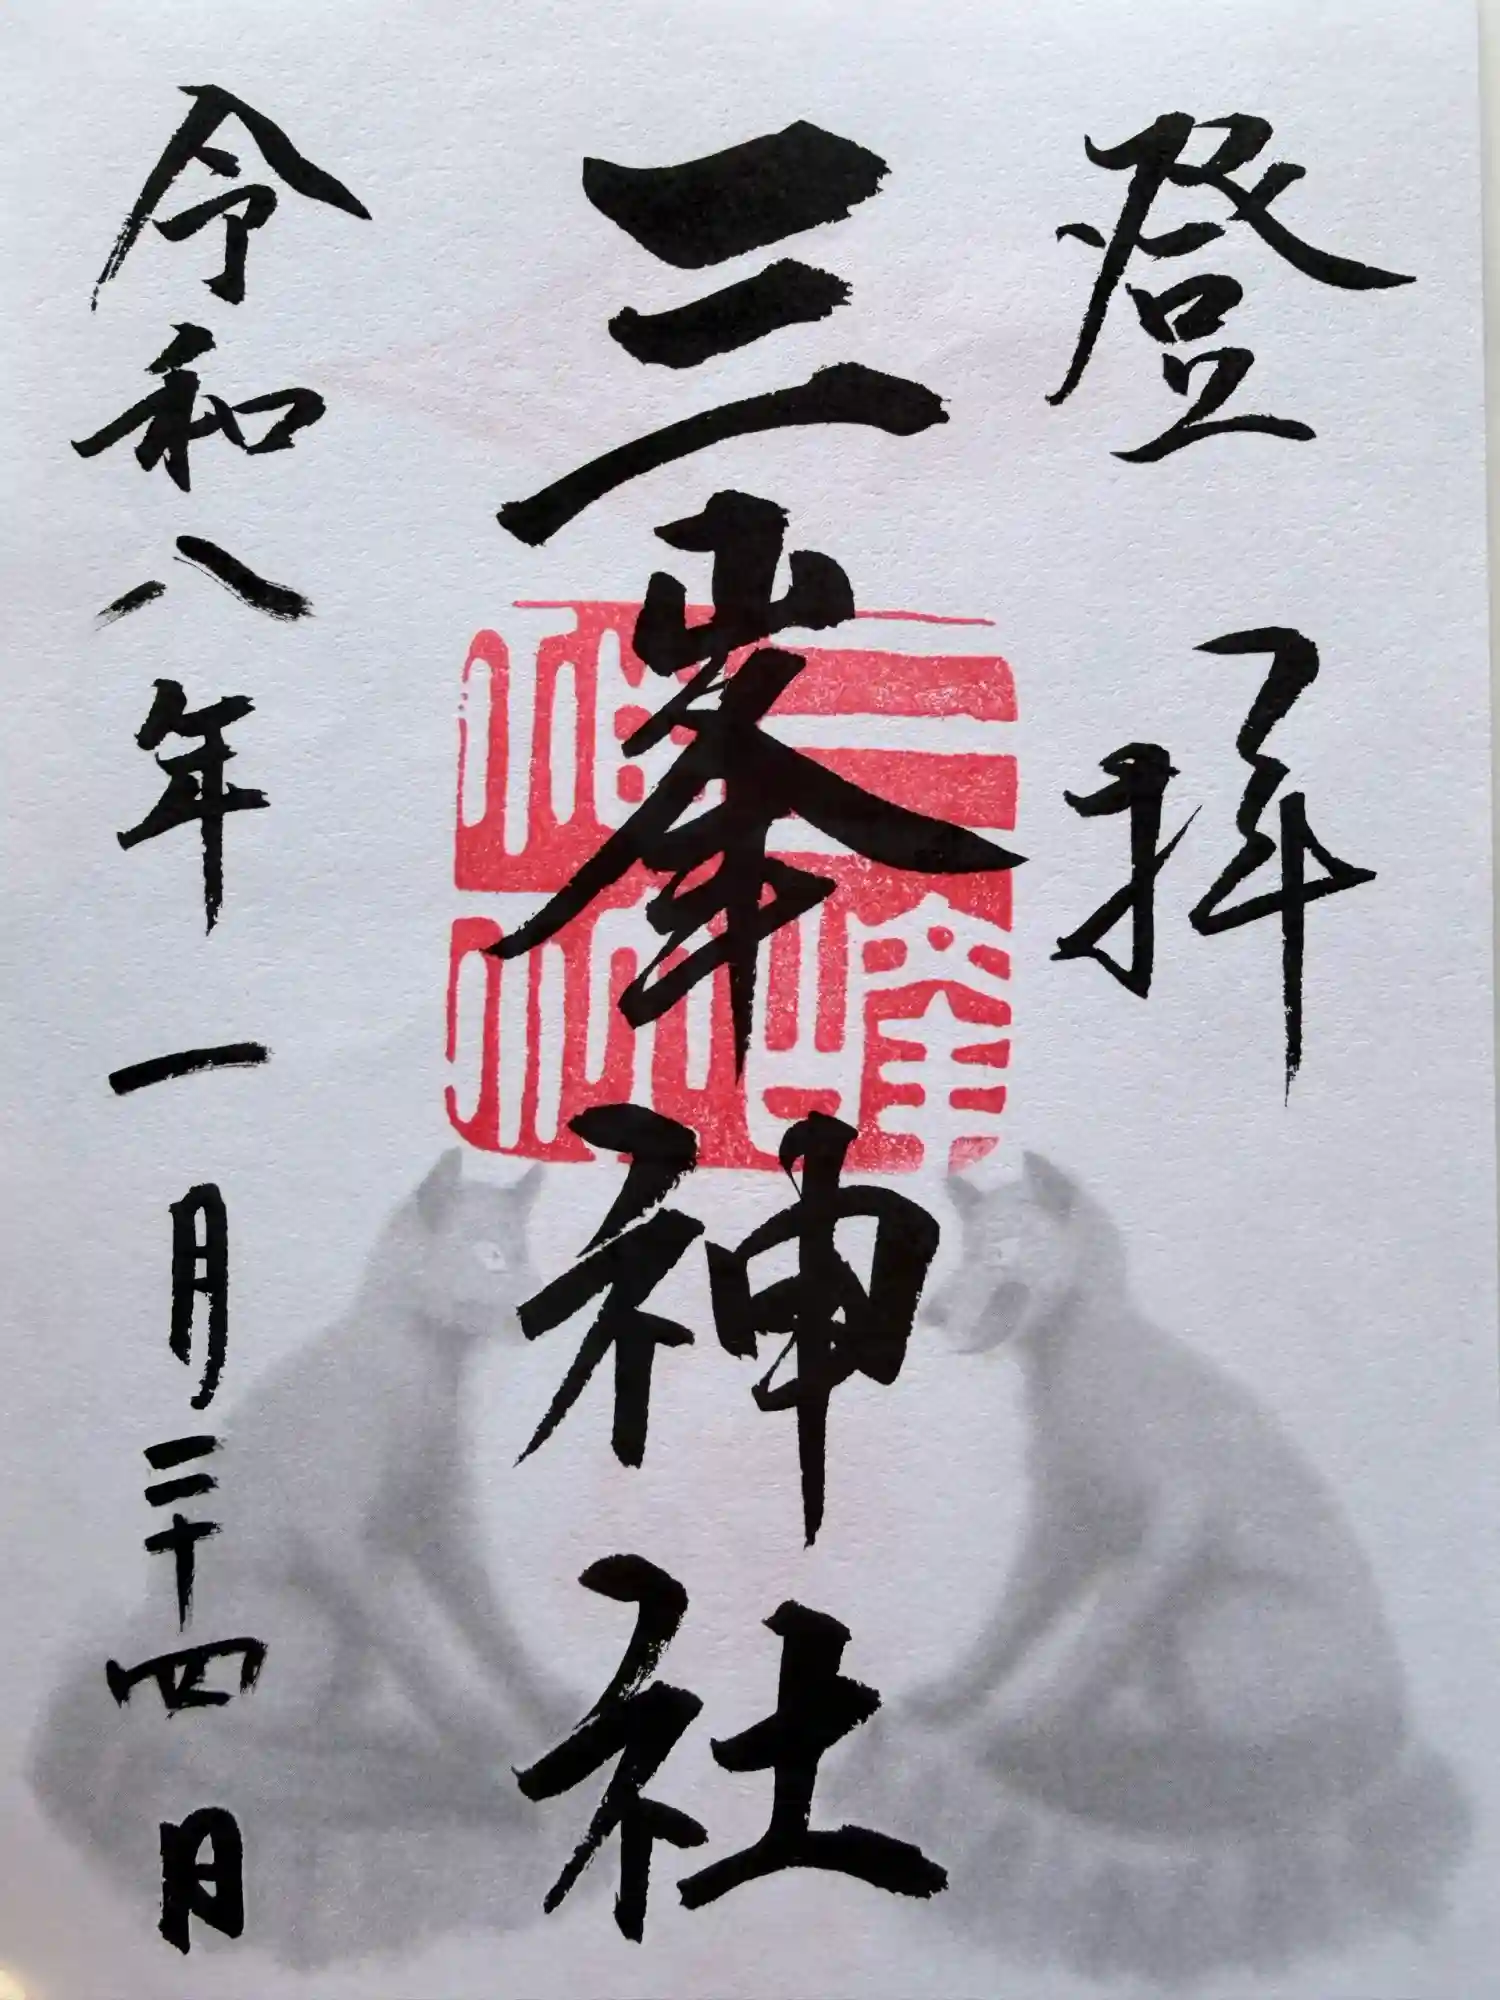 登拝
三峯神社
三峰神社
令和八年一月二十四日